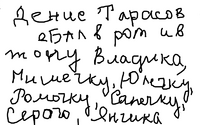 Денис Тарасов
ебал в рот и в
жопу Владика,
Мишечку, Юлечку,
Ромочку, Санечку,
Серого, Янчика